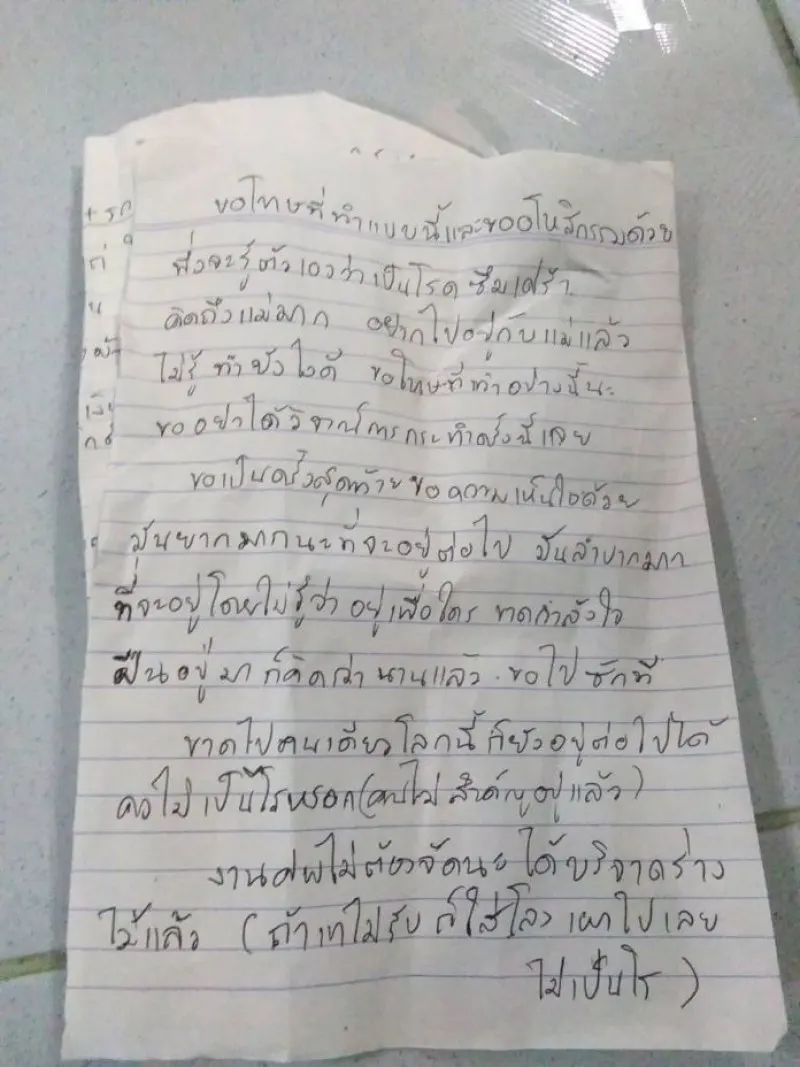 ขอโทษที่ทำแบบนี้และขออโหสิกรรมด้วย
พึ่งจะรู้ตัวเองว่าเป็นโรคซึมเศร้า
คิดถึงแม่มาก อยากไปอยู่กับแม่แล้ว
ไม่รู้ทำยังไงดี ขอโทษที่ทำอย่างนี้นะ
ขออย่าได้วิจารณ์การกระทำครั้งนี้เลย
ขอเป็นครั้งสุดท้ายขอความเห็นใจด้วย
มันยากมากนะที่จะอยู่ต่อไป มันลำบากมาก
ที่จะอยู่โดยไม่รู้ว่าอยู่เพื่อใคร ขาดกำลังใจ
ฝืนอยู่มาก็คิดว่านานแล้ว ขอไปซักที
ขาดไปคนเดียวโลกนี้ก็ยังอยู่ต่อไปได้
คงไม่เป็นไรหรอก(คนไม่สำคัญอยู่แล้ว)
งานศพไม่ต้องจัดนะ ได้บริจาคร่าง
ไว้แล้ว (ถ้าเขาไม่รับ ก็ใส่โลงเผาไปเลย
ไม่เป็นไร)